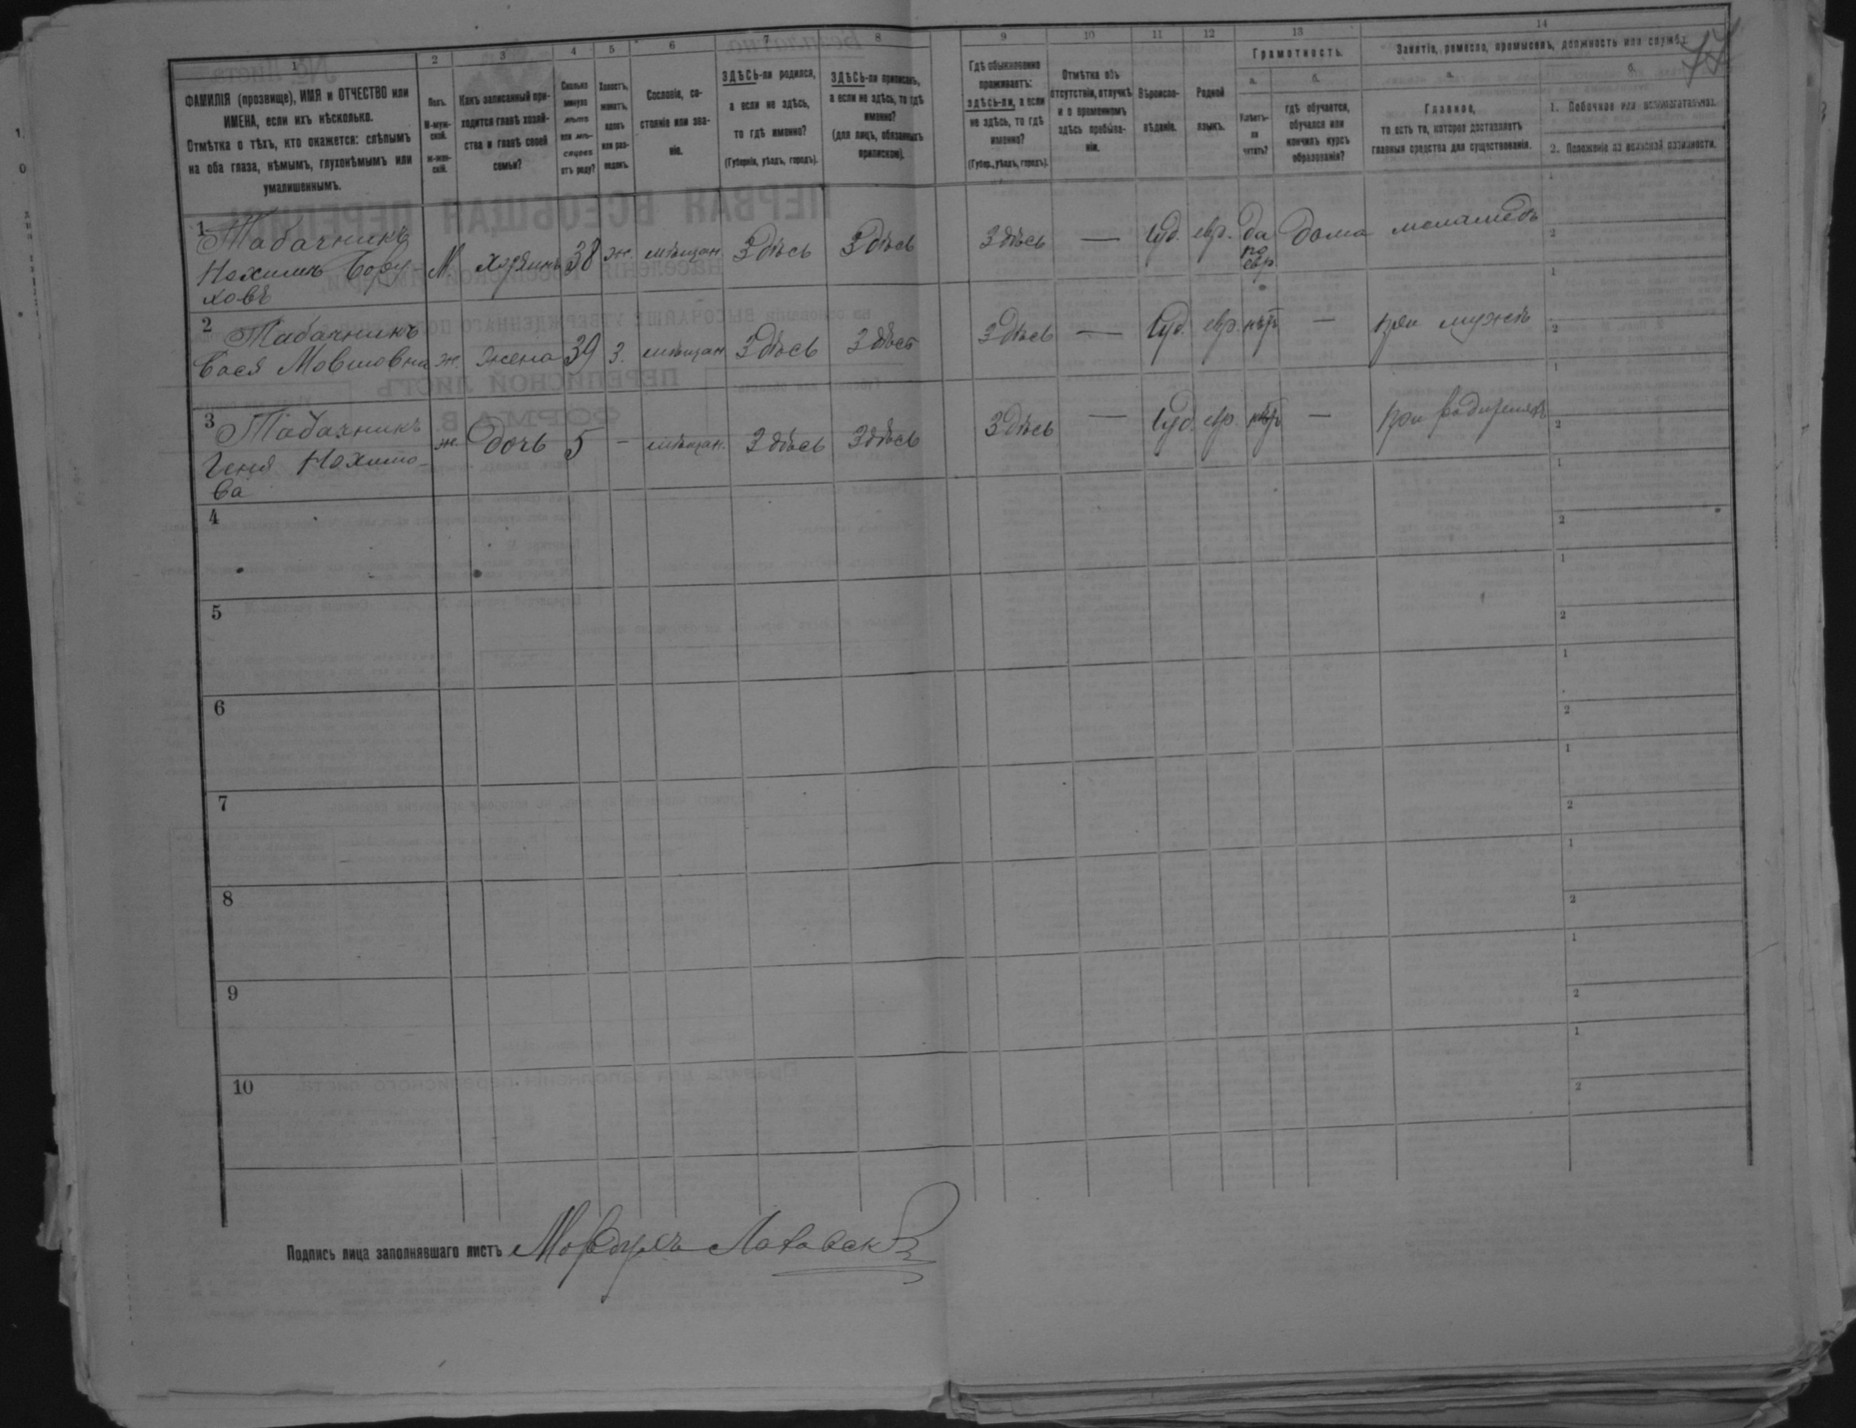 1
2
3
4
5
6
7
8
9
10
11
12
13
14
ФАМИЛІЯ (прозвище), ИМЯ и ОТЧЕСТВО или
ИМЕНА, если ихъ нѣсколько.
Отмѣтка о тѣхъ, кто окажется: слѣпымъ
на оба глаза, нѣмымъ, глухонѣмымъ или
умалишеннымъ.
Полъ.
М-муж-
ской.
ж-жен-
скій.
Какъ записанный при-
ходится главѣ хозяй-
ства и главѣ своей
семьи?
Сколько
минуло
лѣтъ
или мѣ-
сяцевъ
отъ роду?
Холостъ,
женатъ,
вдовъ
или раз-
веденъ.
Сословіе, со-
стояніе или зва-
ніе.
ЗДѢСЬ-ли родился,
а если не здѣсь,
то гдѣ именно?
(Губернія, уѣздъ, городъ).
ЗДѢСЬ-ли приписанъ,
а если не здѣсь, то гдѣ
именно?
(для лицъ, обязанныхъ
припиской).
Гдѣ обыкновенно
проживаетъ:
здѣсь-ли, а если
не здѣсь, то гдѣ
именно?
(Губер., уѣздъ, городъ).
Отмѣтка объ
отсутствіи, отлучкѣ
и о временномъ
здѣсь пребыва-
ніи.
Вѣроиспо-
вѣданіе.
Родной
языкъ.
Грамотность.
а.
Умѣетъ-
ли
читать?
б.
гдѣ обучается,
обучался или
кончилъ курсъ
образованія?
Занятіе, ремесло, промыселъ, должность или служба.
а.
Главное,
то есть то, которое доставляетъ
главныя средства для существованія.
б.
1. Побочное или вспомогательное.
2. Положеніе по воинской повинности.
1 Табачникъ
Нохимъ Бору
ховъ
М. хозяинъ 38 ж. мѣщан. Здѣсь Здѣсь Здѣсь — Іуд. евр. да
по
евр
дома меламедъ
2 Табачникъ
Бася Мовшовна ж. жена 39 З. мѣщан. Здѣсь Здѣсь Здѣсь — Іуд. евр. нѣтъ — при мужѣ
3 Табачникъ
Геня Нохимо-
ва
ж. Дочь 5 — мѣщан. Здѣсь Здѣсь Здѣсь — Іуд. евр. нѣтъ — при родителяхъ
4
5
6
7
8
9
10
Подпись лица заполнявшаго листъ